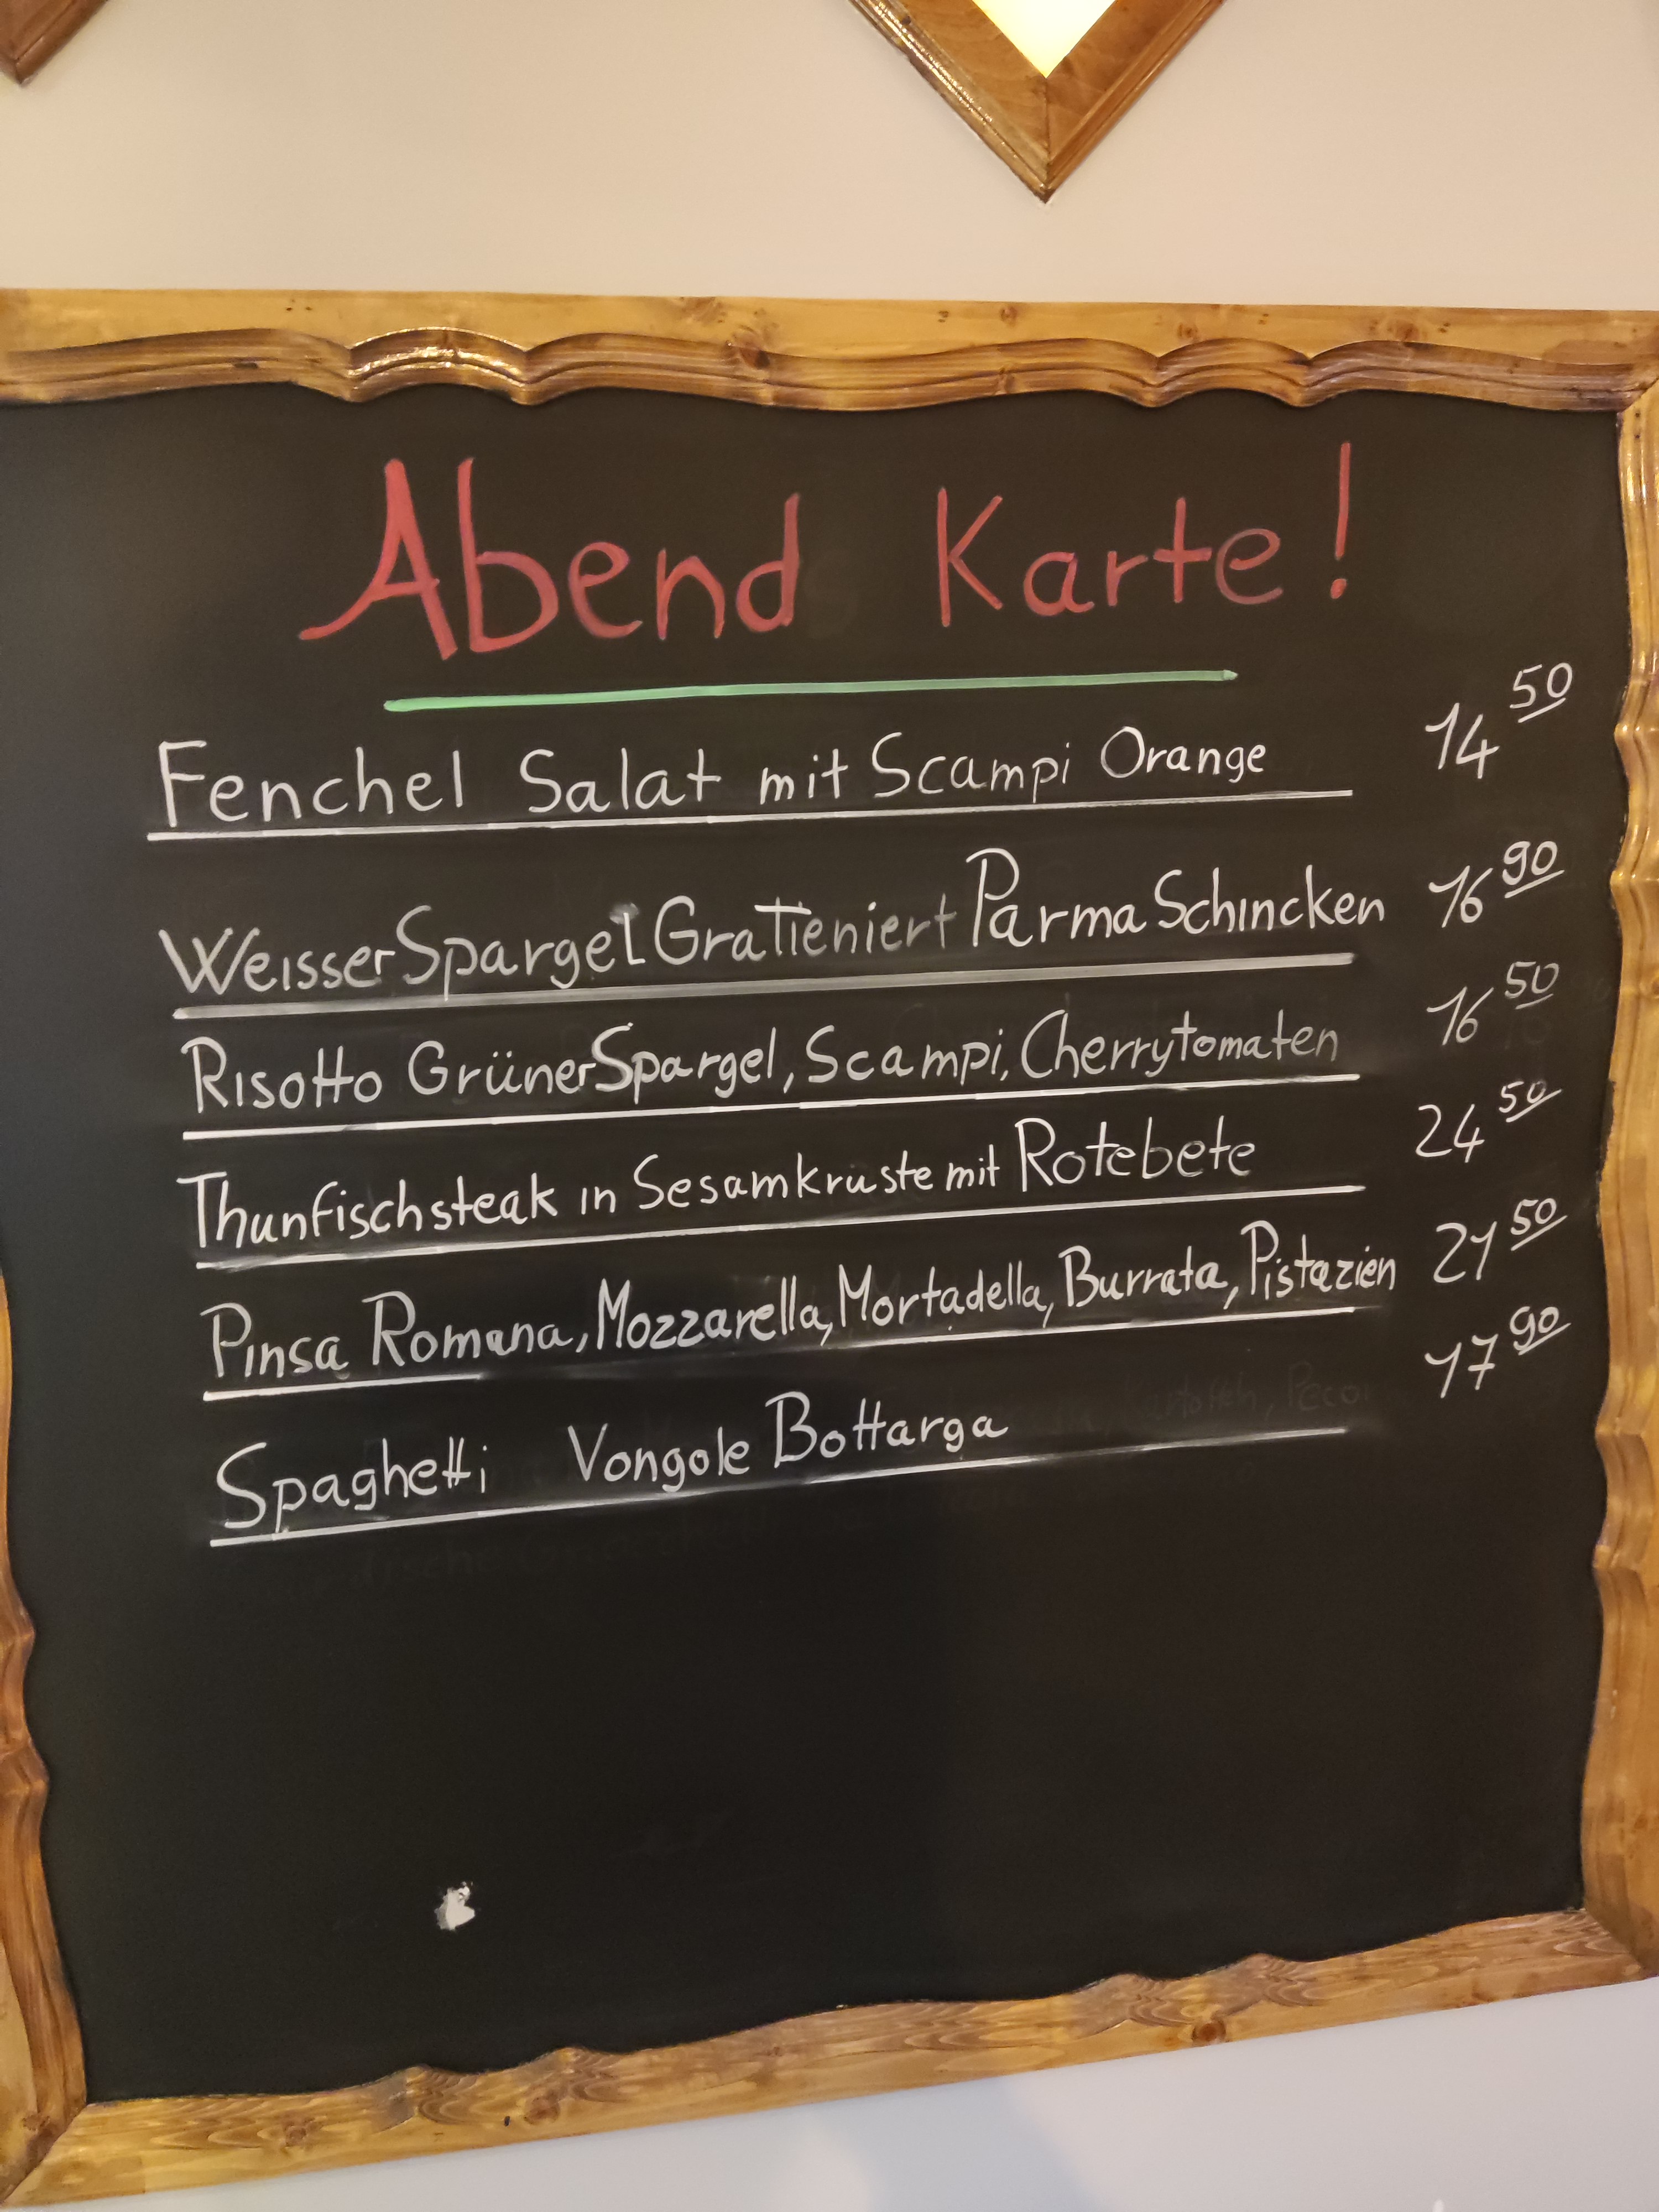 Abend Karte!
Fenchel Salat mit Scampi Orange 14 50
Weisser Spargel Gratieniert Parma Schincken 16 90
Risotto Grüner Spargel, Scampi, Cherrytomaten 16 50
Thunfischsteak in Sesamkruste mit Rotebete 24 50
Pinsa Romana, Mozzarella, Mortadella, Burrata, Pistazien 21 50
Spaghetti Vongole Bottarga 17 90